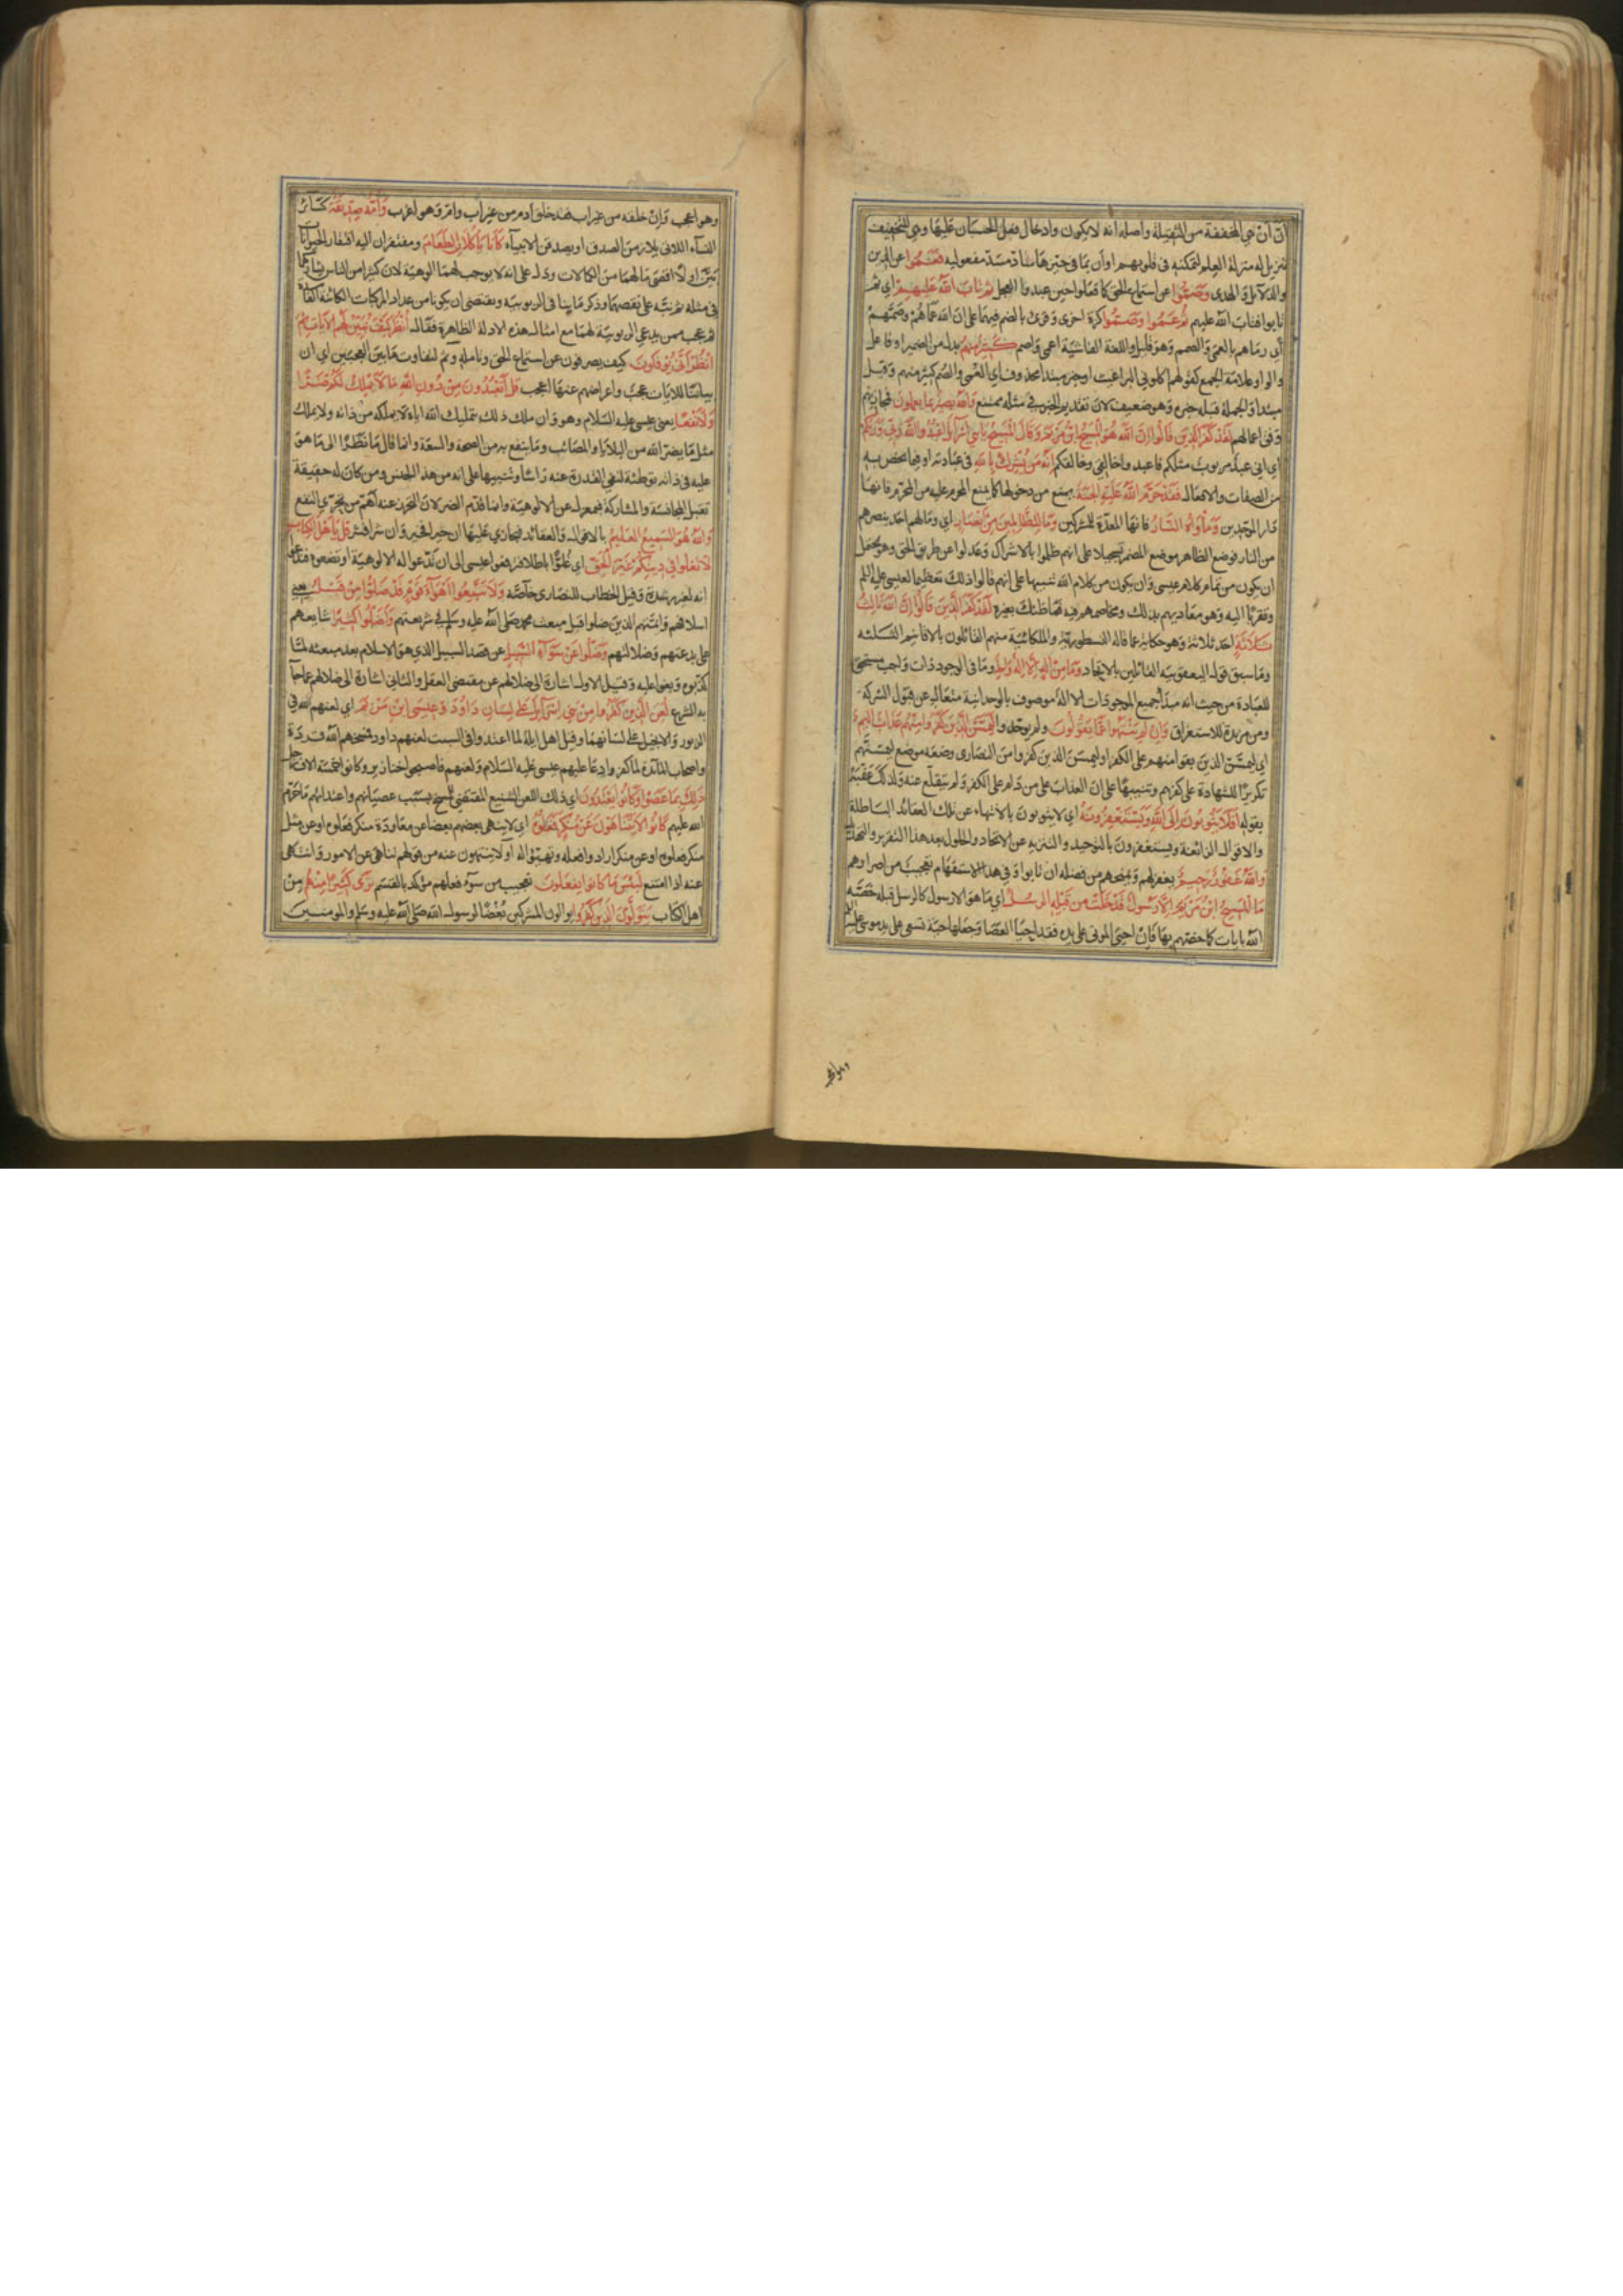 انّ أن هي المخففة من الثقيلة واصله انه لا يكون وادخال فعل الحسبان عليها وهي للتحقيق
تنزيل له منزلة العلم لتمكنه في قلوبهم وأن بما في حيزها ساد مسدّ مفعوليه فعموا عن الدين
والدلائل والهدى وصموا عن استماع الحق كما فعلوا حين عبدوا العجل ثم تاب الله عليهم اي ثم
تابوا فتاب الله عليهم ثم عموا وصموا كرة اخرى وقرئ بالضم فيهما على ان الله عماهم وصمهم
أي رماهم بالعمى والصمم وهو قليل واللغة الفاشية اعمى واصم كثير منهم بدل من الضمير او فاعل
والواو علامة الجمع كقولهم اكلوني البراغيث او خبر مبتدا محذوف اي العمى والصم كثير منهم وقيل
مبتدا والجملة قبله خبره وهو ضعيف لان تقديم الخبر في مثله ممتنع والله بصير بما يعملون فيجازيهم
وفق اعمالهم لقد كفر الذين قالوا ان الله هو المسيح ابن مريم وقال المسيح يا بني اسرائيل اعبدوا الله ربي وربكم
اي اني عبد مربوب مثلكم فاعبدوا خالقي وخالقكم انه من يشرك بالله في عبادته او فيما يختص به
من الصفات والافعال فقد حرم الله عليه الجنة يمنع من دخولها كما يمنع المحرم عليه من المحرم فانها
دار الموحدين وماواه النار فانها المعدة للمشركين وما للظالمين من انصار اي وما لهم احد ينصرهم
من النار فوضع الظاهر موضع المضمر تسجيلا على انهم ظلموا بالاشراك وعدلوا عن طريق الحق وهو يحتمل
ان يكون من تمام كلام عيسى وان يكون من كلام الله تنبيها على انهم قالوا ذلك تعظيما لعيسى عليه السلام
وتقربا اليه وهو معاديهم بذلك ومخاصمهم فيه فما ظنك بغيره لقد كفر الذين قالوا ان الله ثالث
ثلاثة احد ثلاثة وهو حكاية عما قاله النسطورية والملكائية منهم القائلون بالاقانيم الثلثه
وما سبق قول اليعقوبية القائلين بالاتحاد وما من اله الا اله واحد وما في الوجود ذات واجب مستحق
للعبادة من حيث انه مبدأ جميع الموجودات الا اله موصوف بالوحدانية متعال عن قبول الشركة
ومن مزيدة للاستغراق وان لم ينتهوا عما يقولون ولم يوحدوا ليمسن الذين كفروا منهم عذاب اليم
اي ليمسن الذين بقوا منهم على الكفر او ليمسن الذين كفروا من النصارى وضعه موضع ليمسنهم
تكريرا للشهادة على كفرهم وتنبيها على ان العذاب على من دام على الكفر ولم ينقلع عنه ولذلك عقبه
بقوله افلا يتوبون الى الله ويستغفرونه اي لا يتوبون بالانتهاء عن تلك العقائد الباطلة
والاقوال الزائغة ويستغفرون بالتوحيد والتنزيه عن الاتحاد والحلول بعد هذا التقرير والتهديد
والله غفور رحيم يغفر لهم ويمنحهم من فضله ان تابوا وفي هذا الاستفهام تعجيب من اصرارهم
ما المسيح ابن مريم الا رسول قد خلت من قبله الرسل اي ما هو الا رسول كالرسل قبله خصه
الله بايات كما خصهم بها فان احيى الموتى على يده فقد احيا العصا وجعلها حية تسعى على يد موسى عليه السلام
وهو اعجب
وهو اعجب وان خلقه من غير اب فقد خلق ادم من غير اب وام وهو اغرب وامه صديقة كسائر
النساء اللاتي يلازمن الصدق او يصدقن الانبياء كانا ياكلان الطعام ومفتقران اليه افتقار الحيوانات
بين اولا اقصى ما لهما من الكمالات ودل على انه لا يوجب لهما الوهية لان كثيرا من الناس يشاركهما
في مثله ثم نبه على نقصهما وذكر ما ينافي الربوبية ويقتضي ان يكونا من عداد المركبات الكائنة الفاسدة
ثم عجب ممن يدعي الربوبية لهما مع امثال هذه الادلة الظاهرة فقال انظر كيف نبين لهم الايات ثم
انظر انى يوفكون كيف يصرفون عن استماع الحق وتامله وثم لتفاوت ما بين العجبين اي ان
بياننا للايات عجب واعراضهم عنها اعجب قل اتعبدون من دون الله ما لا يملك لكم ضرا
ولا نفعا يعني عيسى عليه السلام وهو وان ملك ذلك بتمليك الله اياه لا يملكه من ذاته ولا يملك
مثل ما يضر الله من البلايا والمصائب وما ينفع به من الصحة والسعة وانما قال ما نظرا الى ما هو
عليه في ذاته توطئة لنفي القدرة عنه راسا وتنبيها على انه من هذا الجنس ومن كان له حقيقة
تقبل المجانسة والمشاركة فبمعزل عن الالوهية وانما قدم الضر لان التحرز عنه اهم من تحري النفع
والله هو السميع العليم بالاقوال والعقائد فيجازي عليها ان خيرا فخير وان شرا فشر قل يا اهل الكتاب
لا تغلوا في دينكم غير الحق اي غلوا باطلا فترفعوا عيسى الى ان تدعوا له الالوهية او تضعوه فتزعموا
انه لغير رشدة وقيل الخطاب للنصارى خاصة ولا تتبعوا اهواء قوم قد ضلوا من قبل يعني
اسلافهم وائمتهم الذين ضلوا قبل مبعث محمد صلى الله عليه وسلم في شريعتهم واضلوا كثيرا شايعهم
على بدعتهم وضلالتهم وضلوا عن سواء السبيل عن قصد السبيل الذي هو الاسلام بعد مبعثه لما
كذبوه وبغوا عليه وقيل الاول اشارة الى ضلالهم عن مقتضى العقل والثاني اشارة الى ضلالهم عما جا
به الشرع لعن الذين كفروا من بني اسرائيل على لسان داود وعيسى ابن مريم اي لعنهم الله في
الزبور والانجيل على لسانهما وقيل اهل ايلة لما اعتدوا في السبت لعنهم داود فمسخهم الله قردة
واصحاب المائدة لما كفروا دعا عليهم عيسى عليه السلام ولعنهم فاصبحوا خنازير وكانوا خمسة الاف رجل
ذلك بما عصوا وكانوا يعتدون اي ذلك اللعن الشنيع المقتضي للمسخ بسبب عصيانهم واعتدائهم ما حرم
الله عليهم كانوا لا يتناهون عن منكر فعلوه اي لا ينهى بعضهم بعضا عن معاودة منكر فعلوه او عن مثل
منكر فعلوه او عن منكر ارادوا فعله وتهيؤا له او لا ينتهون عنه من قولهم تناهى عن الامر وانتهى
عنه اذا امتنع لبئس ما كانوا يفعلون تعجيب من سوء فعلهم مؤكد بالقسم ترى كثيرا منهم من
اهل الكتاب يتولون الذين كفروا يوالون المشركين بغضا لرسول الله صلى الله عليه وسلم والمومنين